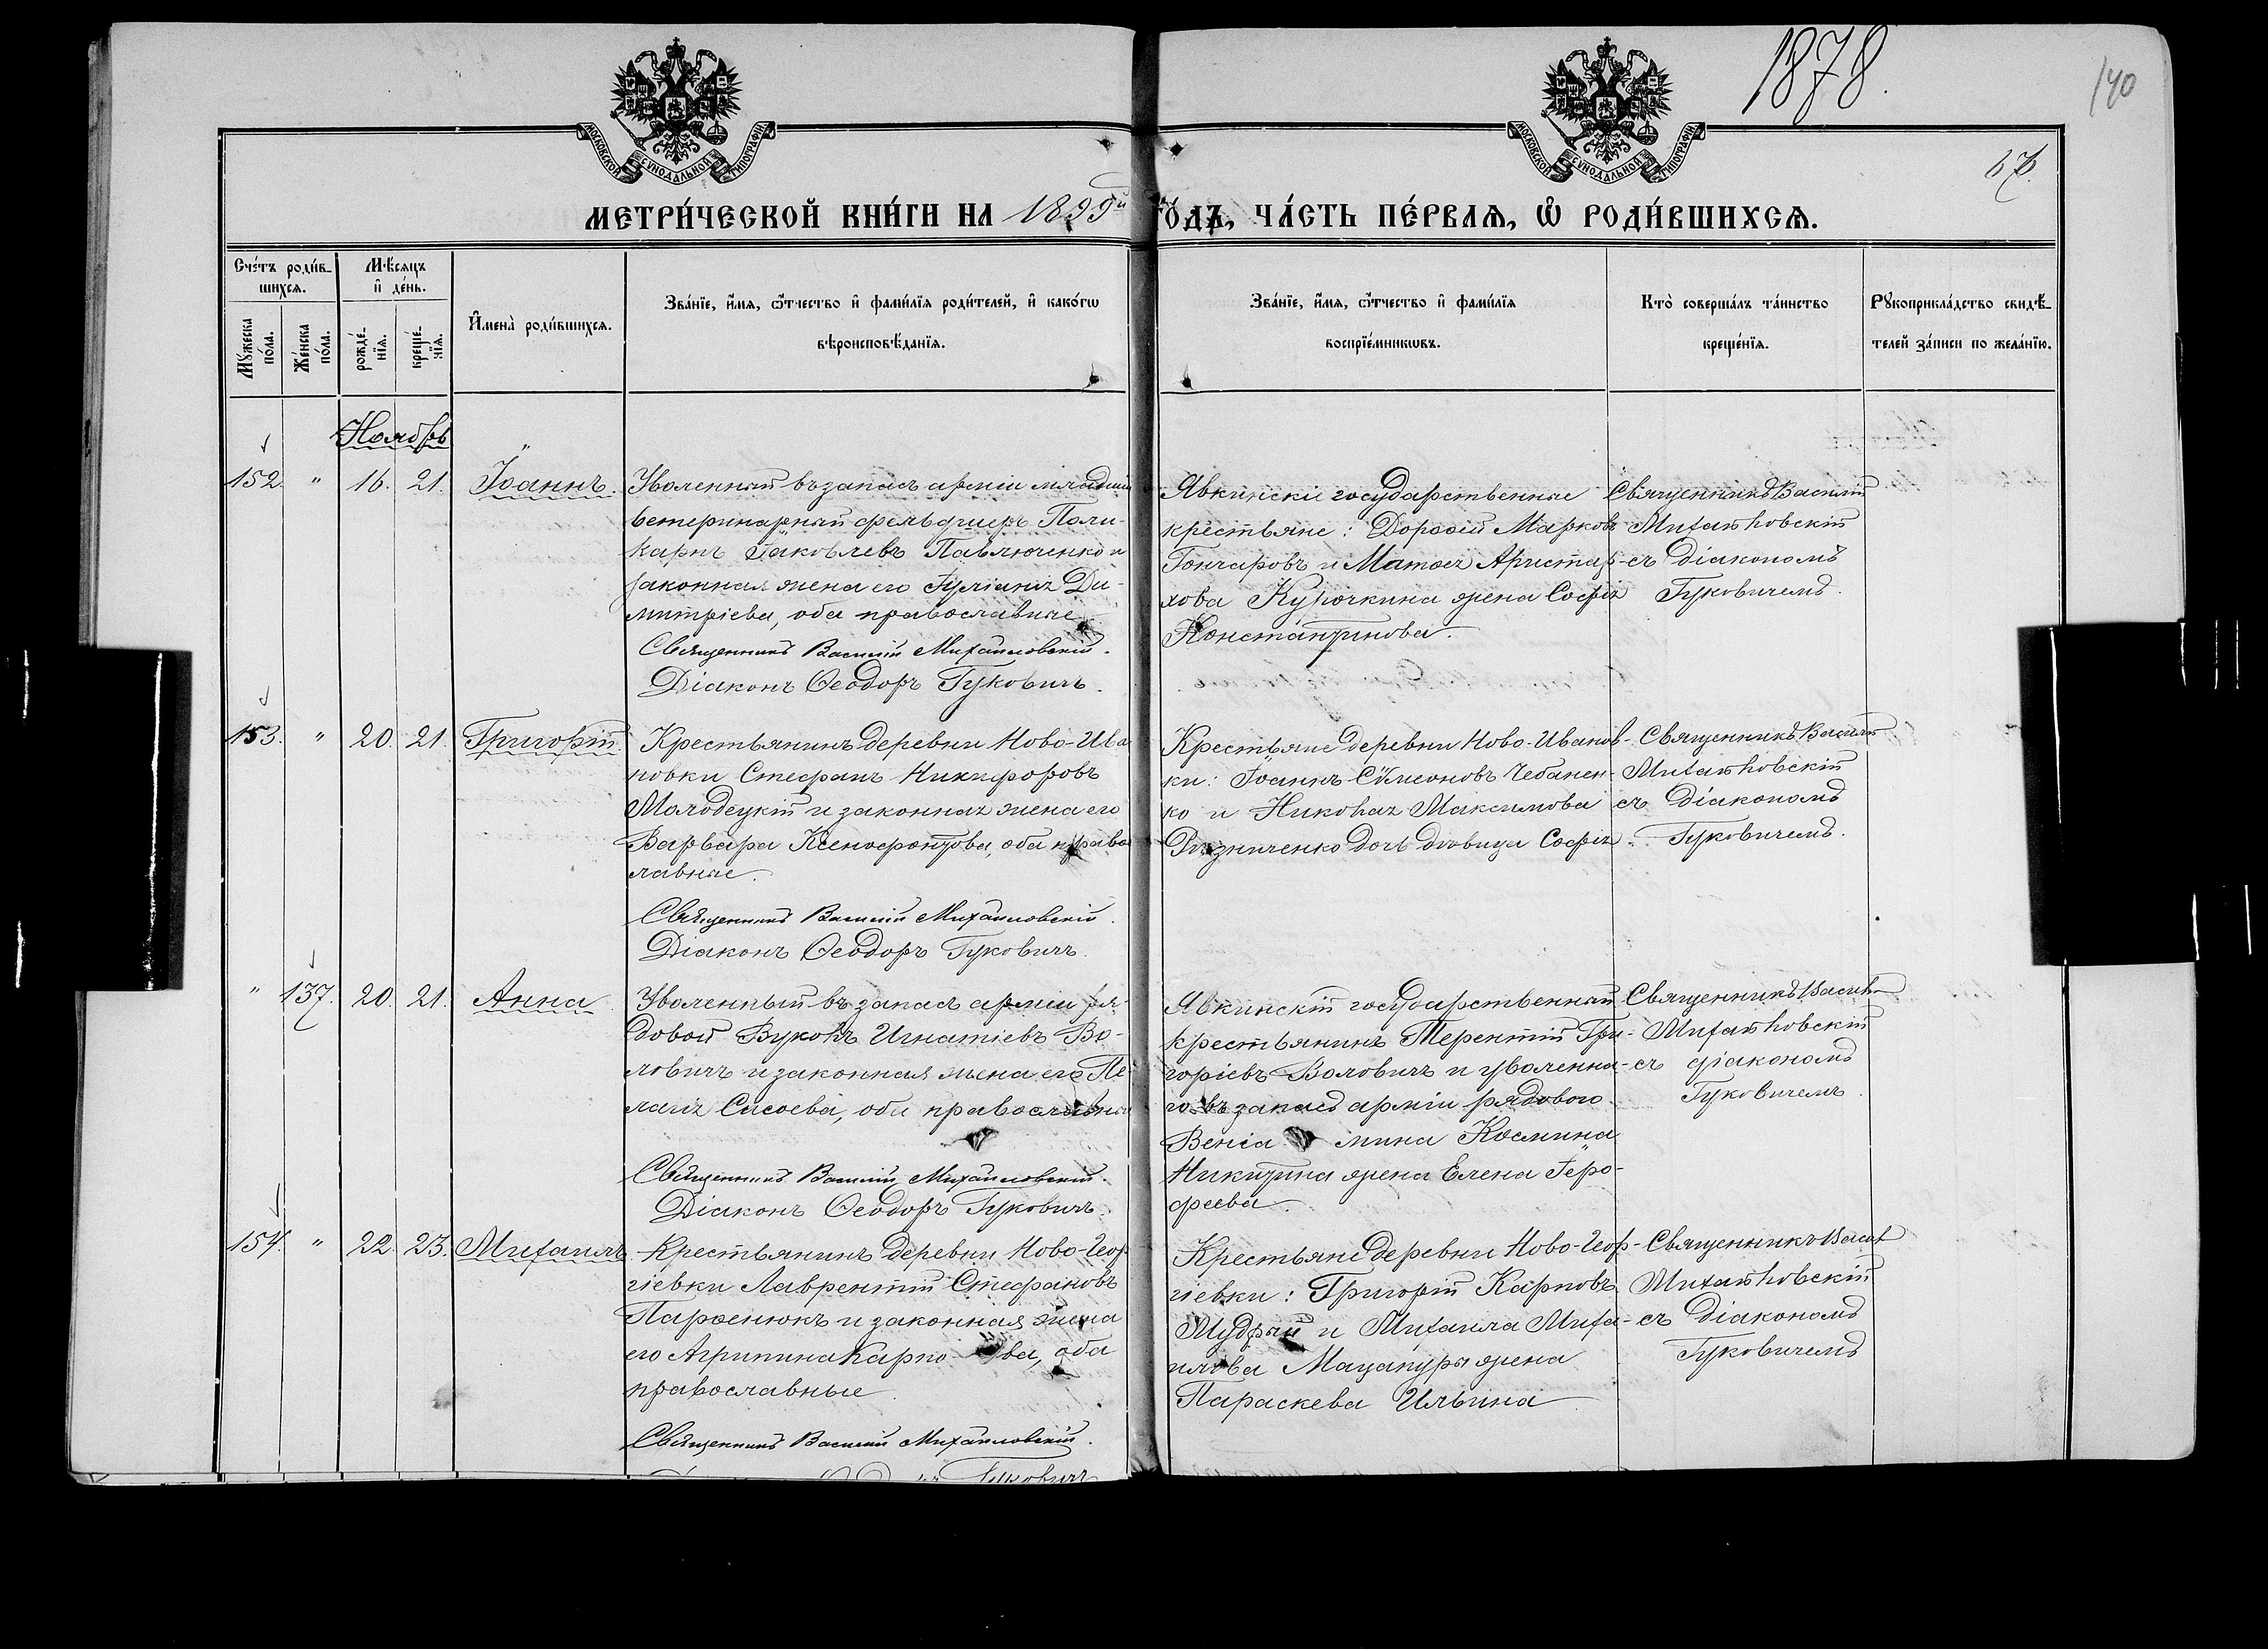 1878.
140
МОСКОВСКОЙ СѴНОДАЛЬНОЙ ТИПОГРАФІИ
МОСКОВСКОЙ СѴНОДАЛЬНОЙ ТИПОГРАФІИ
МЕТРИ́ЧЕСКОЙ КНИ́ГИ НА 1899й ГОДЪ, ЧА́СТЬ ПЕ́РВАѦ, Ѡ҆ РОДИ́ВШИХСѦ.
Сче́тъ роди́в-
шихсѧ.
Мѣ́сѧцъ
и҆ де́нь.
Мꙋ́жеска по́ла.
Же́нска по́ла.
рожде́-
нїѧ.
креще́-
нїѧ.
И҆мена̀ роди́вшихсѧ.
Зва́нїе, и҆́мѧ, ѻ҆́тчество и҆ фами́лїѧ роди́телей, и҆ како́гѡ
вѣроисповѣ́данїѧ.
Зва́нїе, и҆́мѧ, ѻ҆́тчество и҆ фами́лїѧ
воспрїе́мникѡвъ.
Кто̀ соверша́лъ та́инство
креще́нїѧ.
Рꙋкоприкла́дство свидѣ́-
телей за́писи по жела́нїю.
Ноябрь
152. " 16. 21. Іоаннъ.
Уволенный въ запасъ арміи младшій
ветеринарный фельдшеръ Поли-
карпъ Іаковлевъ Павлюченко и
законная жена его Іуліанія Ди-
митріева, оба православные
Священникъ Василій Михайловскій.
Діаконъ Ѳеодоръ Гуковичъ.
Явкинскіе государственные
крестьяне: Дороѳей Марковъ
Гончаровъ и Матѳея Аристар-
хова Курочкина жена Софія
Константинова.
Священникъ Василій
Михайловскій
съ діакономъ
Гуковичемъ.
153. " 20. 21. Григорій.
Крестьянинъ деревни Ново-Ива-
новки Стефанъ Никифоровъ
Молодецкій и законная жена его
Варвара Ксенофонтова, оба право-
лавные.
Священникъ Василій Михайловскій.
Діаконъ Ѳеодоръ Гуковичъ.
Крестьяне деревни Ново-Иванов-
ки: Іоаннъ Сѵмеоновъ Чебанен-
ко и Николая Максимова
Рѣзниченко дочь дѣвица Софія.
Священникъ Василій
Михайловскій
съ діакономъ
Гуковичемъ.
" 137. 20. 21. Анна
Уволенный въ запасъ арміи ря-
довой Вуколъ Игнатіевъ Во-
ловичъ и законная жена его Пе-
лагія Сисоева, оба православные
Священникъ Василій Михайловскій.
Діаконъ Ѳеодоръ Гуковичъ.
Явкинскій государственный
крестьянинъ Терентій Гри-
горіевъ Воловичъ и уволенна-
го въ запасъ арміи рядового
Веніамина Космина
Никитина жена Елена Іеро-
феева.
Священникъ Василій
Михайловскій
съ діакономъ
Гуковичемъ.
154. " 22. 23. Михаилъ
Крестьянинъ деревни Ново-Геор-
гіевки Лаврентій Стефановъ
Парѳенюкъ и законная жена
его Агрипина Карпова, оба
православные.
Священникъ Василій Михайловскій.
Гуковичъ
Крестьяне деревни Ново-Геор-
гіевки: Григорій Карповъ
Мудрый и Михаила Миха-
илова Мацапуры жена
Параскева Ильина
Священникъ Васил
Михайловскій
съ діакономъ
Гуковичемъ